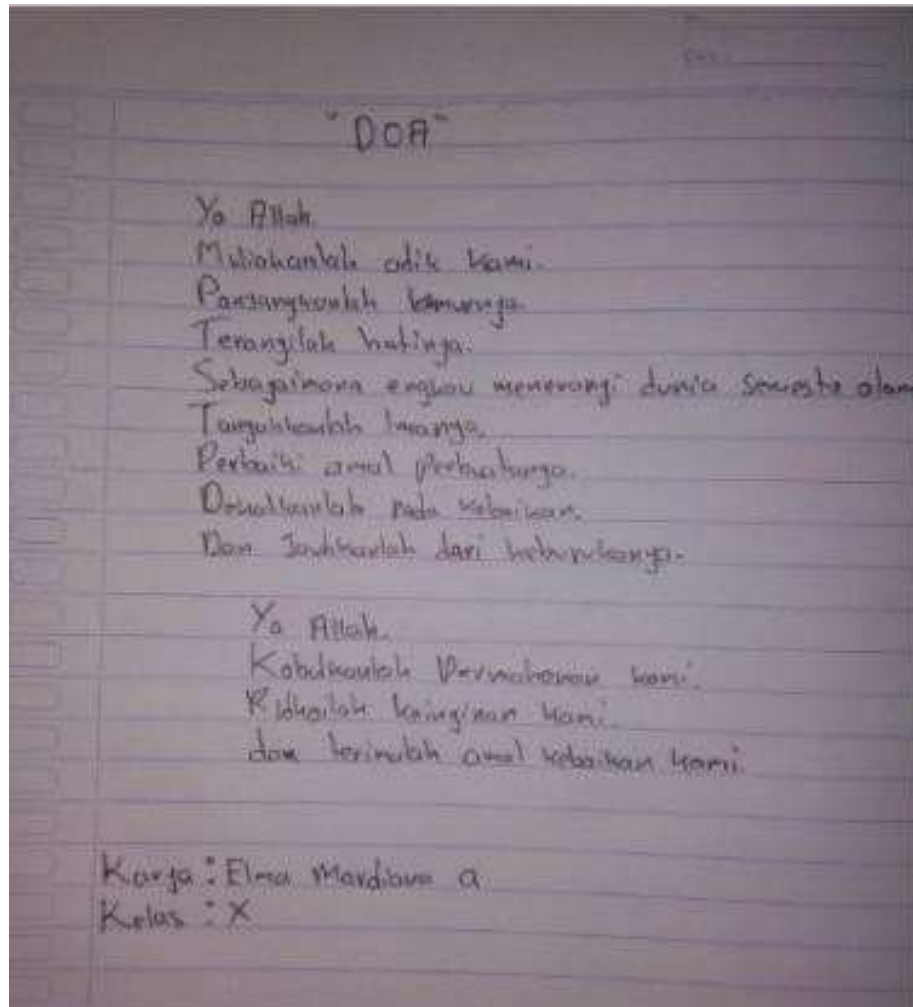 "DOA"
Ya Allah.
Muliakanlah adik kami.
Panjangkanlah
Terangilah hatinya.
Sebagaimana engkau menerangi dunia semesta alam
Tangguhkanlah imanya.
Perbaiki amal perbuatanya.
Dekatkanlah pada kebaikan.
Dan Jauhkanlah dari keburukanya.
Ya Allah.
Kabulkanlah Permohonan kami.
Ridhoilah keinginan kami.
dan terimalah amal kebaikan kami.
Karya : Elma Mardiana a
Kelas : X